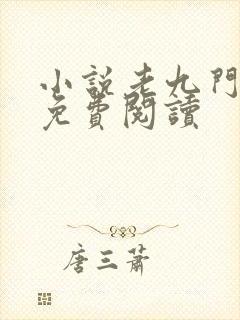 小説老九門
免費閱讀
唐三蕭